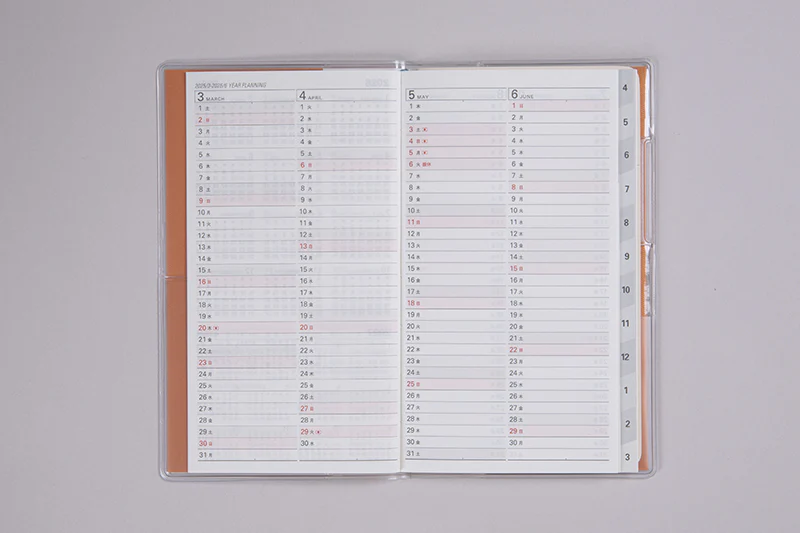 YEAR PLANNING
3 MARCH
1 土
2 日
3 月
4 火
5 水
6 木
7 金
8 土
9 日
10 月
11 火
12 水
13 木
14 金
15 土
16 日
17 月
18 火
19 水
20 木
21 金
22 土
23 日
24 月
25 火
26 水
27 木
28 金
29 土
30 日
31 月
4 APRIL
1 火
2 水
3 木
4 金
5 土
6 日
7 月
8 火
9 水
10 木
11 金
12 土
13 日
14 月
15 火
16 水
17 木
18 金
19 土
20 日
21 月
22 火
23 水
24 木
25 金
26 土
27 日
28 月
29 火
30 水
5 MAY
1 木
2 金
3 土
4 日
5 月
6 火
7 水
8 木
9 金
10 土
11 日
12 月
13 火
14 水
15 木
16 金
17 土
18 日
19 月
20 火
21 水
22 木
23 金
24 土
25 日
26 月
27 火
28 水
29 木
30 金
31 土
6 JUNE
1 日
2 月
3 火
4 水
5 木
6 金
7 土
8 日
9 月
10 火
11 水
12 木
13 金
14 土
15 日
16 月
17 火
18 水
19 木
20 金
21 土
22 日
23 月
24 火
25 水
26 木
27 金
28 土
29 日
30 月
4
5
6
7
8
9
10
11
12
1
2
3